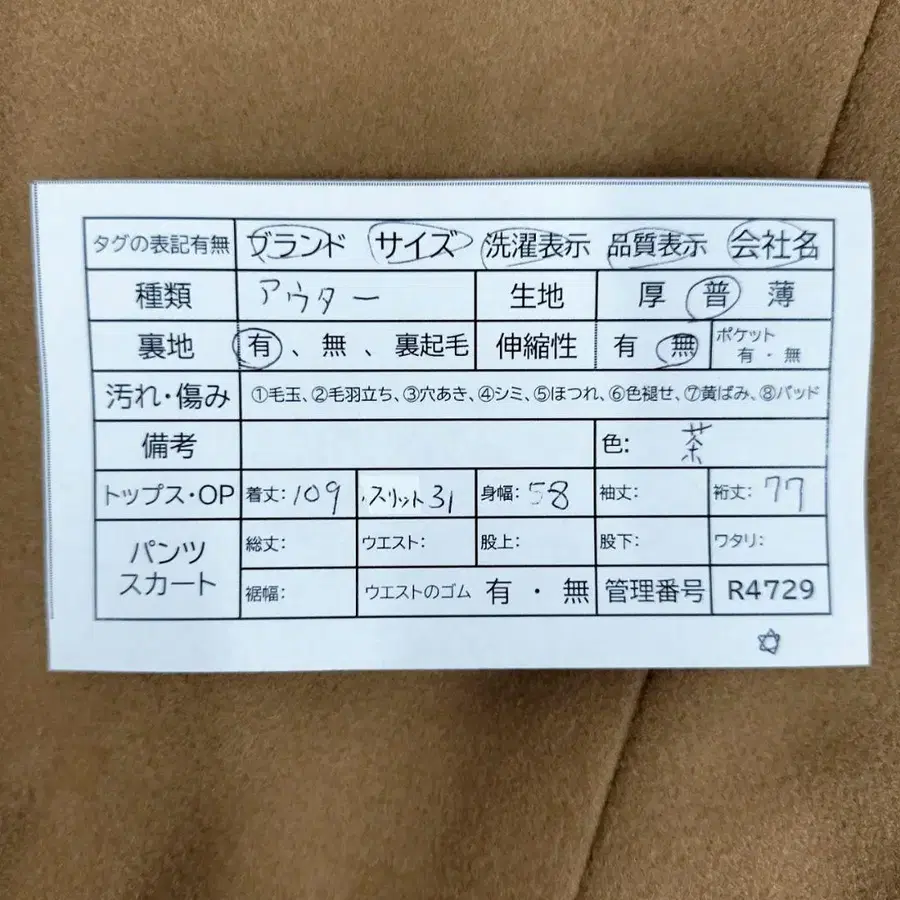 タグの表記有無 ブランド サイズ 洗濯表示 品質表示 会社名
種類 アウター 生地 厚 普 薄
裏地 有、無、裏起毛 伸縮性 有 無 ポケット 有・無
汚れ・傷み ①毛玉、②毛羽立ち、③穴あき、④シミ、⑤ほつれ、⑥色褪せ、⑦黄ばみ、⑧パッド
備考 色: 茶
トップス・OP 着丈:109 スリット31 身幅:58 袖丈: 裄丈:77
パンツ スカート 総丈: ウエスト: 股上: 股下: ワタリ:
裾幅: ウエストのゴム 有・無 管理番号 R4729